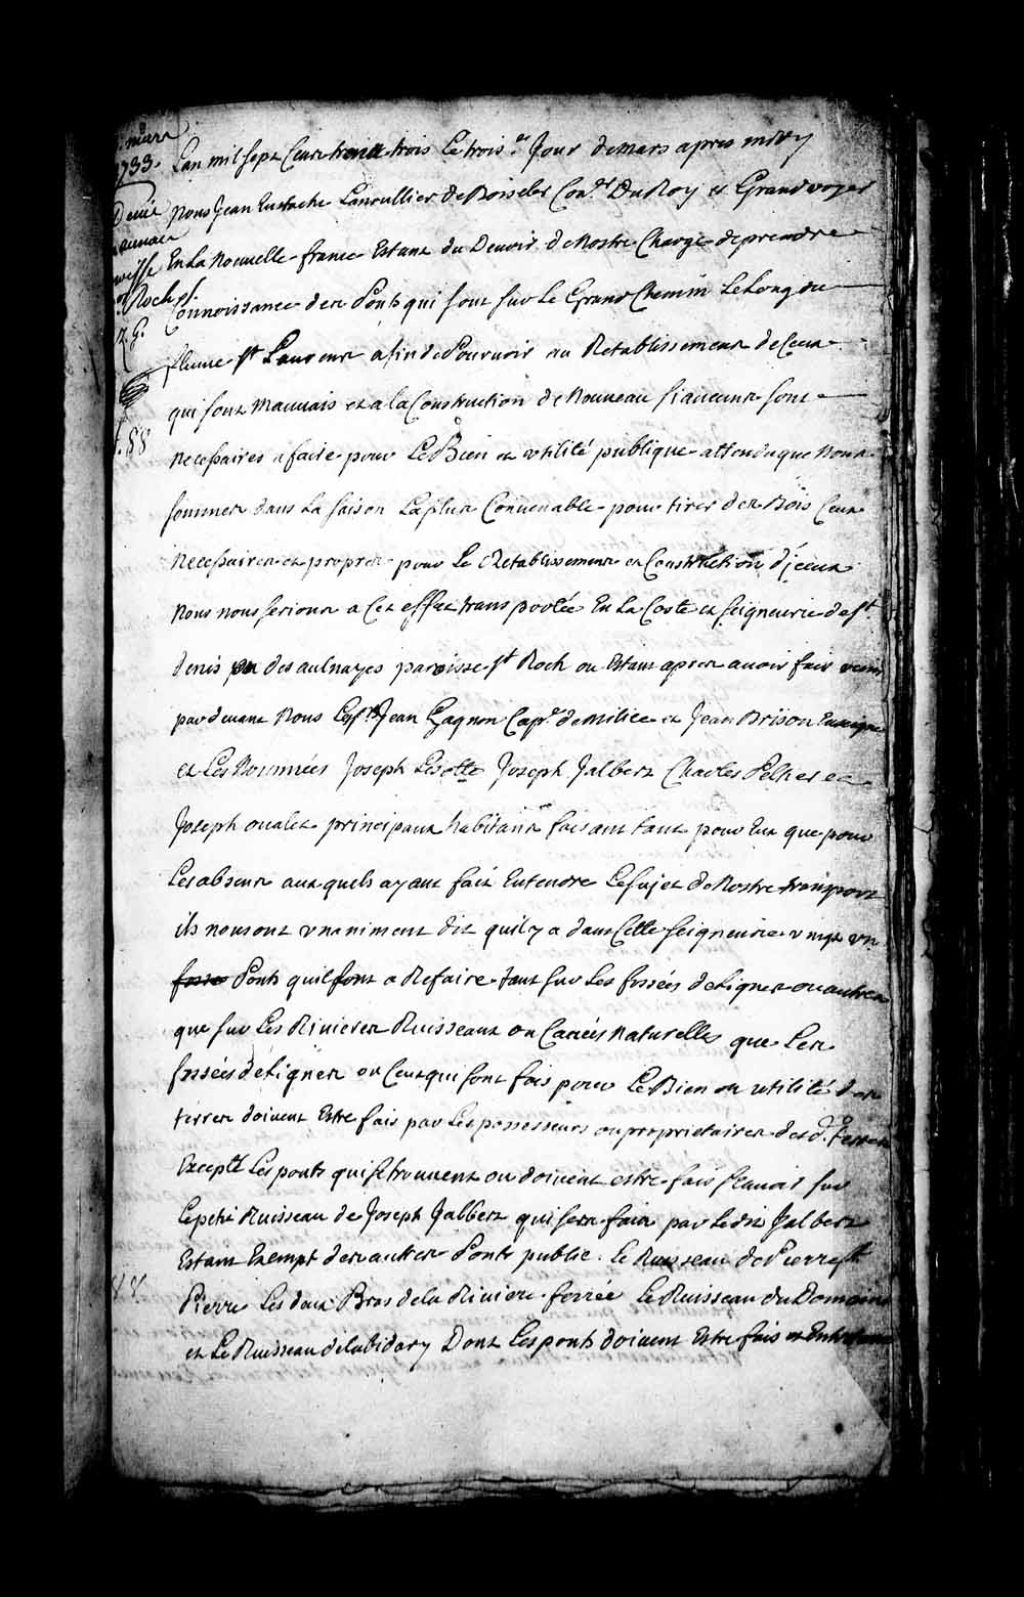 mars
1733.
St Roch
Lan mil sept Cent trente trois Le trois.e Jour de mars apres midy
Nous Jean Eustache Lanoullier de Boisclerc Con.er Du Roy et Grand voyer
En La Nouvelle france Estant du Devoir de Nostre Charge de prendre
Connoissance des Ponts qui sont sur Le Grand Chemin Le Long du
fleuve St Laurent afin de Pourvoir au Retablissement de Ceux
qui sont Mauvais et a la Construction de Nouveau si aucuns sont
Necessaires a faire pour Le Bien et utilité publique attendu que Nous
sommes dans La saison La plus Convenable pour tirer des Bois Ceux
Necessaires et propres pour Le Retablissement et Construction d'jceux
Nous nous serions a Cet effet transportée En La Coste et seigneurie de St
denis des aulnayes paroisse St Roch ou Estant apres avoir fait venir
par devant Nous Les Srs Jean Gagnon Cap.e de Milice et Jean Brison Enseigne
et Les Nommées Joseph Lisotte Joseph Jalbert Charles Pelherec
Joseph oualet principaux habitans faisant tant pour Eux que pour
Les absens aux quels ayant fait Entendre Le sujet de Nostre transport
ils nous ont unanimement dit quil y a dans Cette seigneurie vingt un
Ponts quil font a Refaire tant sur Les fossées de Lignes ou autres
que sur Les Rivieres Ruisseaux ou Careés Naturelles que Les
fossées de Lignes ou Ceux qui sont fais pour Le Bien ou utilité des
terres doivent Estre fais par Les possesseurs ou proprietaires des d. terres
Excepté Les ponts qui se trouvent ou doivent estre fais sçavoir sur
Le petit Ruisseau de Joseph Jalbert qui sera fait par Ledit Jalbert
Estant Exempt des autres Ponts public. Le Ruisseau de Pierre St
Pierre Les deux Bras de la Riviere ferrée Le Ruisseau du Domaine
et Le Ruisseau de labidary Dont Les ponts doivent Estre fais et Entretenus